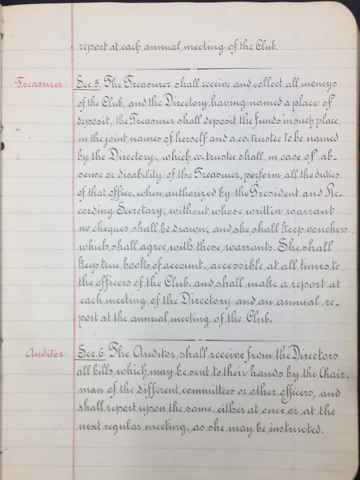 report at each annual meeting of the Club.
Treasurer. Sec. 5. The Treasurer shall receive and collect all moneys
of the Club, and the Directory having named a place of
deposit, the Treasurer shall deposit the funds in such place
in the joint names of herself and a co. trustee to be named
by the Directory, which co. trustee shall, in case of ab-
sence or disability of the Treasurer, perform all the duties
of that office, when authorized by the President and Re-
cording Secretary, without whose written warrant
no cheques shall be drawn, and she shall keep vouchers
which shall agree with these warrants. She shall
keep true books of account, accessible at all times to
the officers of the Club, and shall make a report at
each meeting of the Directory and an annual re-
port at the annual meeting of the Club.
Auditor. Sec. 6. The Auditor, shall receive from the Directors
all bills which may be sent to their hands by the Chair-
man of the different committees or other officers, and
shall report upon the same, either at once or at the
next regular meeting, as she may be instructed.